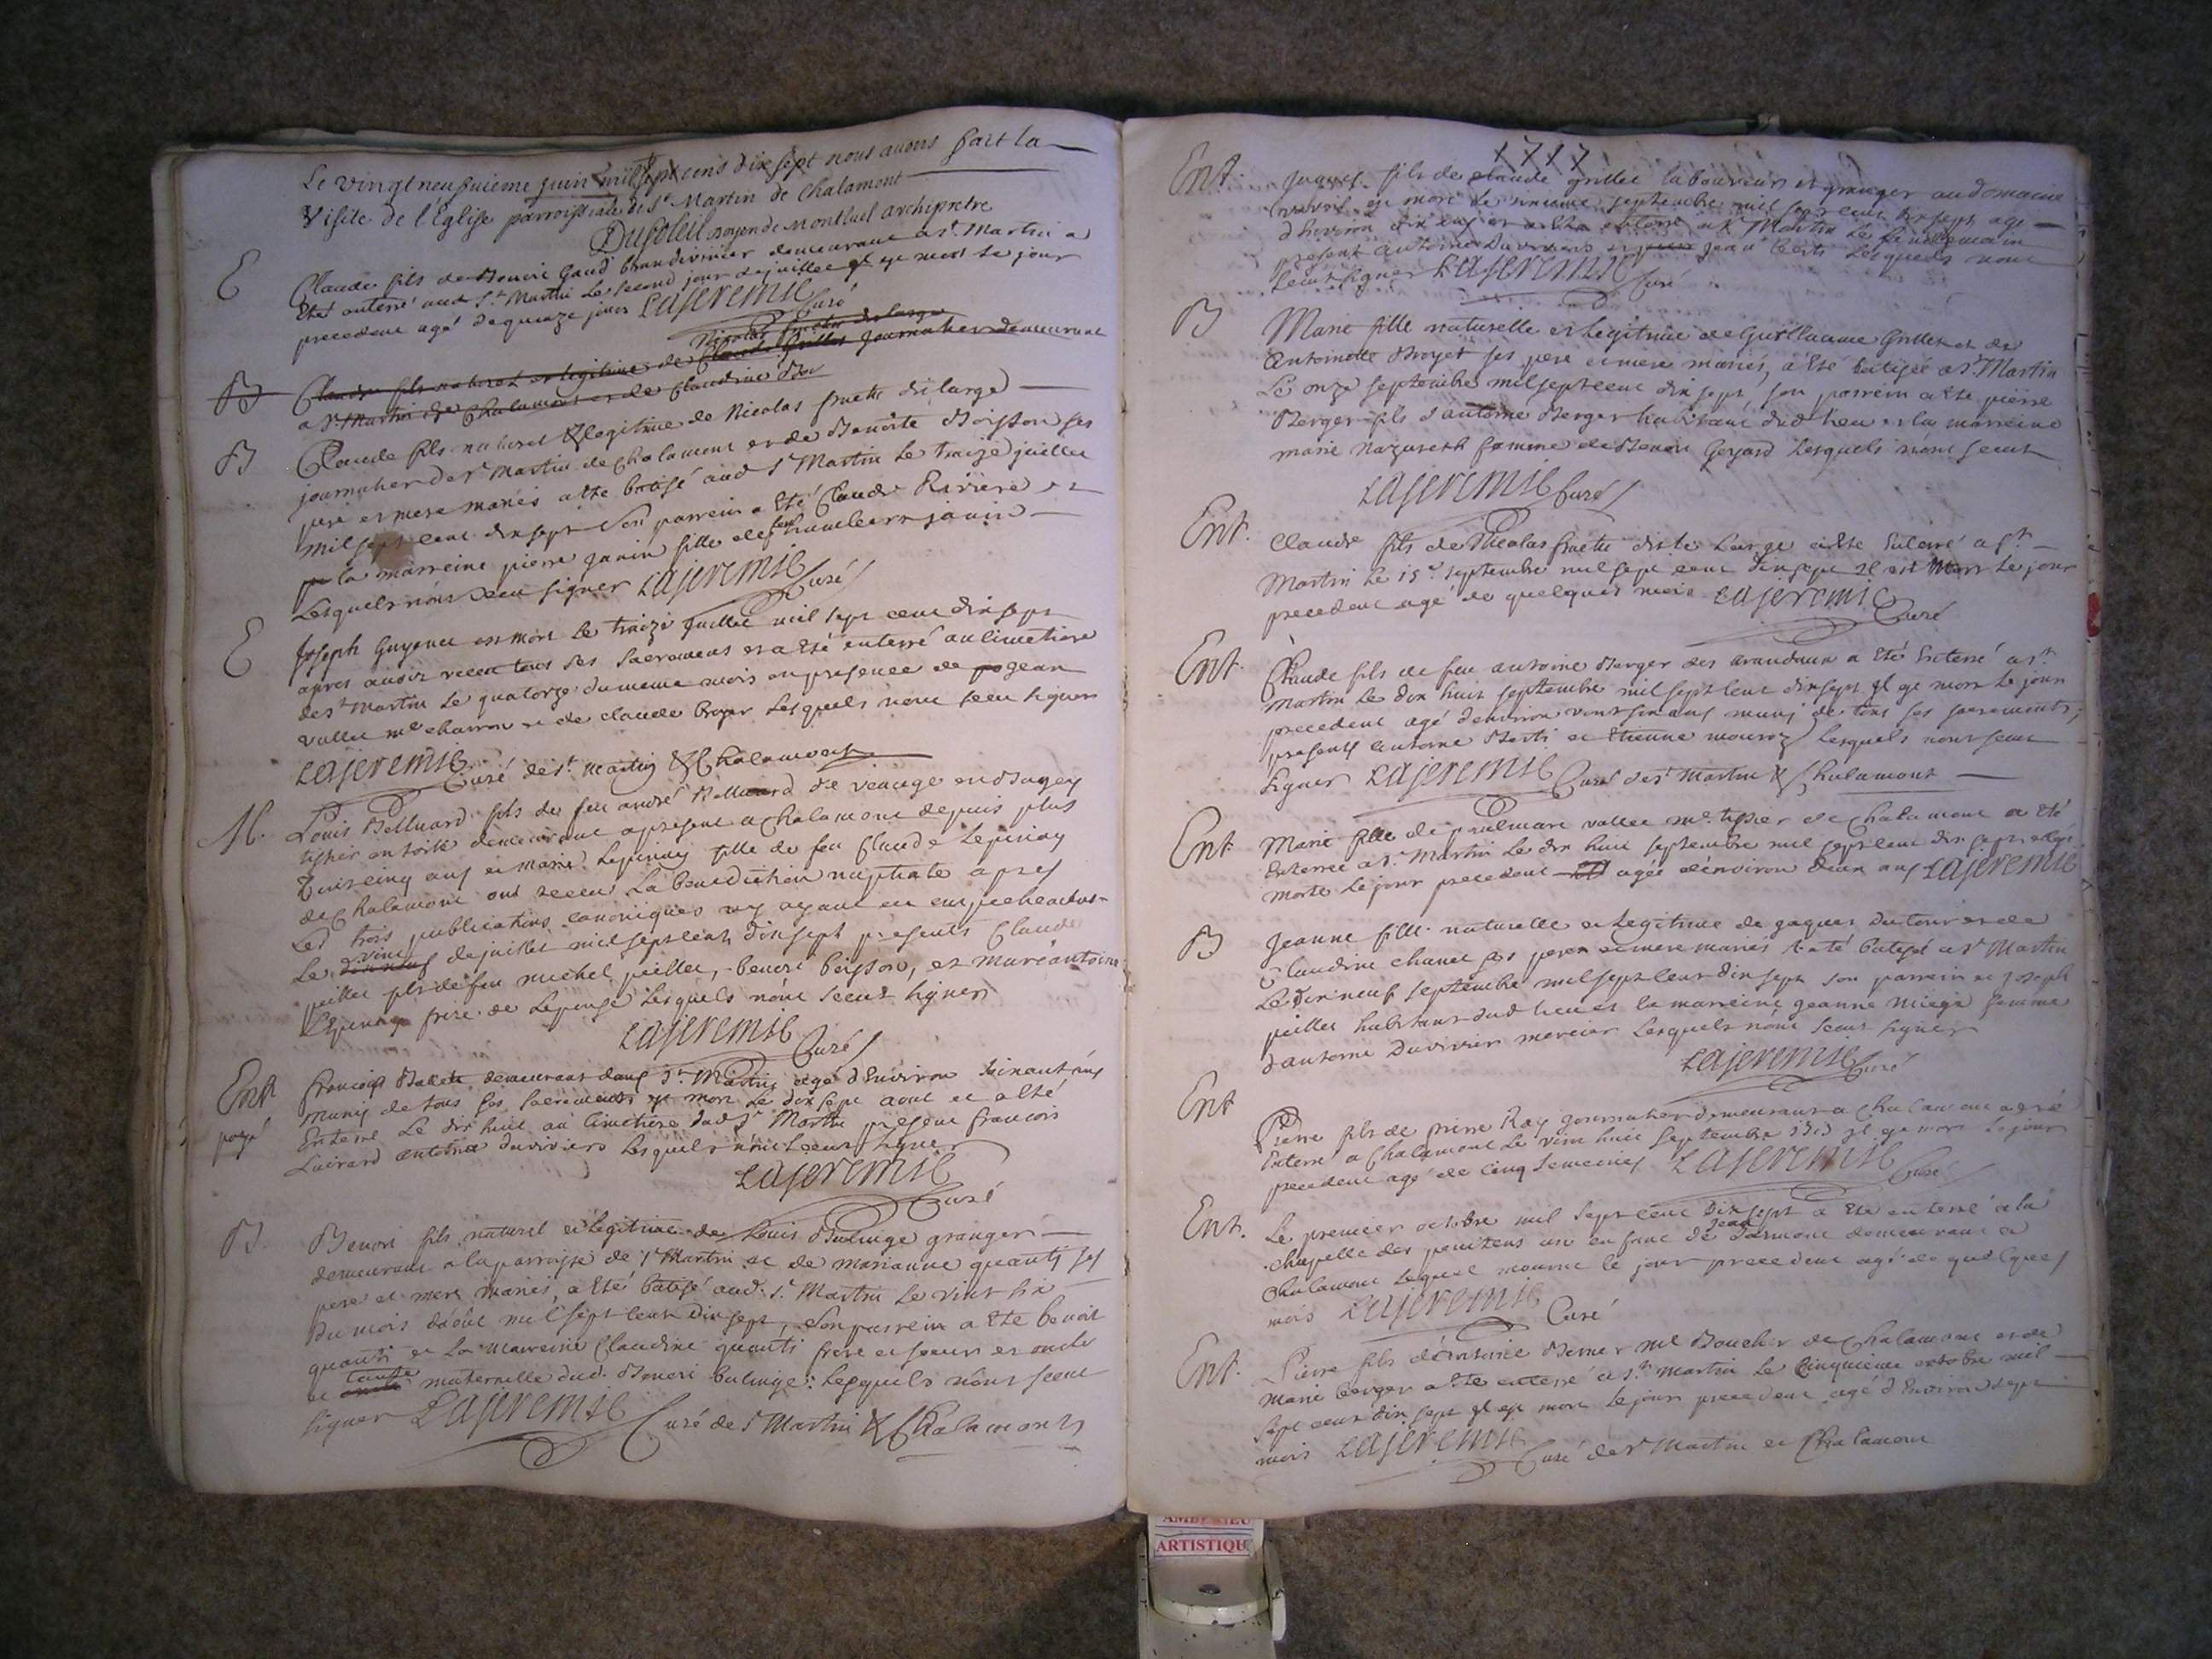 Le vingt neufuieme juin mil sept cens dix sept nous avons fait la
Visite de l'Eglise parroissiale de St Martin de Chalamont
Dusoleil doyen de Montluel archipretre
E
Claude fils de Benoit demeurant a St Martin a
Eté enterré aud St Martin Le second jour de juillet il est mort le jour
precedent agé de quinze jours Lajeremie Curé
Nicolas
B
Claude fils naturel et legitime de Claude Grillet journalier demeurant
a St Martin de Chalamont et de Claudine
B
Claude fils naturel & legitime de Nicolas dit large
journalier de St Martin de Chalamont et de Benoite Boisson ses
pere et mere mariés a ete batisé aud St Martin Le traize juillet
mil sept cent dix sept Son parrein a Eté Claude Riviere et
la marreine pierre janin fille de feu janin
Lesquels n'ont sceu signer Lajeremie Curé
E
Joseph Guyonet est mort Le traize juillet mil sept cent dix sept
apres avoir receu tous ses sacremens et a Eté enterré au cimetiere
de St Martin Le quatorze du meme mois en presence de jean
vallet me charron et de claude broyer Lesquels n'ont sceu signer
Lajeremie Curé de St Martin & Chalamont
M.
Louis Belluard fils de feu andré Belluard de en Bugey
tissier en toile demeurant a present a Chalamont depuis plus
ans et marie Lepinay fille de feu Claude Lepinay
de Chalamont ont receu La benediction nuptiale apres
Les trois publications canoniques n'y ayant eu
vint
Le dix neuf de juillet mil sept cent dix sept presents Claude
peillet fils de feu michel peillet, benoit boisson, et marc antoine
frere de Lepouse Lesquels n'ont sceut signer
Lajeremie Curé
Ent
payé
francois demeurant dans St Martin agé d'Environ soixant ans
Muny de tous ses sacremens est mort Le dix sept aout et a Eté
Enterré Le dix huit au Cimetiere dud St Martin present francois
antoine duvivier Lesquels n'ont sceus signer
Lajeremie
Curé
B.
Benoit fils naturel et legitime de Louis Bulinge granger
demeurant a la parroisse de St Martin et de marianne quanti ses
pere et mere mariés, a Eté batisé aud. St Martin Le vint six
Du mois d'aout mil sept cent Dix sept, Son parrein a Ete benoit
quanti et La marreine Claudine quanti frere et soeur et oncle
tante
et maternelle dud. Benoit bulinge: Lesquels n'ont sceut
signer Lajeremie Curé de St Martin & Chalamont
1717
Ent.
Jaques fils de claude grillet laboureur et granger au domaine
est mort le septembre mil sept cent dix sept agé
d'environ dix et a Ete enterré a St Martin Le lendemain
present antoine Duvivier et jean Lesquels n'ont
sceut signer Lajeremie Curé
B
Marie fille naturelle et Legitime de Guillaume Grillet et de
Antoinette Broyet ses pere et mere mariés, a Eté batisée a St Martin
Le onze septembre mil sept cent dix sept, son parrein a Ete pierre
Berger fils d'antoine Berger habitant dud. lieu et la marreine
marie Nazareth femme de Benoit Goyard Lesquels n'ont sceut
Lajeremie Curé
Ent.
Claude fils de Nicolas dit le Large a Ete Enterré a St
Martin Le 15e septembre mil sept cent dix sept il est Mort Le jour
precedent agé de quelques mois Lajeremie
Curé
Ent.
Claude fils de feu antoine Berger des a Eté Enterré a St
Martin Le dix huit septembre mil sept cent dix sept il est mort Le jour
precedent agé d'environ ans muny de tous ses sacrements;
presents antoine et Etienne Lesquels n'ont sceut
signer Lajeremie Curé de St Martin & Chalamont
Ent
Marie fille de vallet me tissier de Chalamont a Eté
Enterrée a St Martin Le dix huit septembre mil sept cent dix sept
morte Le jour precedent agée d'environ deux ans Lajeremie
B
Jeanne fille naturelle et Legitime de jaques Dutour et de
Claudine chanel ses pere et mere mariés a eté batisée a St Martin
Le dix neuf septembre mil sept cent dix sept son parrein est joseph
peillet habitant dud lieu et la marreine jeanne femme
d'antoine Duvivier mercier Lesquels n'ont sceut signer
Lajeremie Curé
Ent
Pierre fils de pierre Ray journalier demeurant a Chalamont a eté
Enterré a Chalamont Le vint huit septembre 1717 il est mort Le jour
precedent agé de cinq semaines Lajeremie Curé
Ent.
Le premier octobre mil sept cent Dix sept a Eté enterré a la
chapelle des penitens un enfant de Jean demeurant a
Chalamont Lequel mourut le jour precedent agé de quelques
mois Lajeremie Curé
Ent.
Pierre fils d'antoine me Boucher de Chalamont et de
Marie berger a Ete enterré a St Martin Le cinquieme octobre mil
sept cent dix sept il est mort Le jour precedent agé d'Environ sept
mois Lajeremie Curé de St Martin et Chalamont
ARTISTIQU